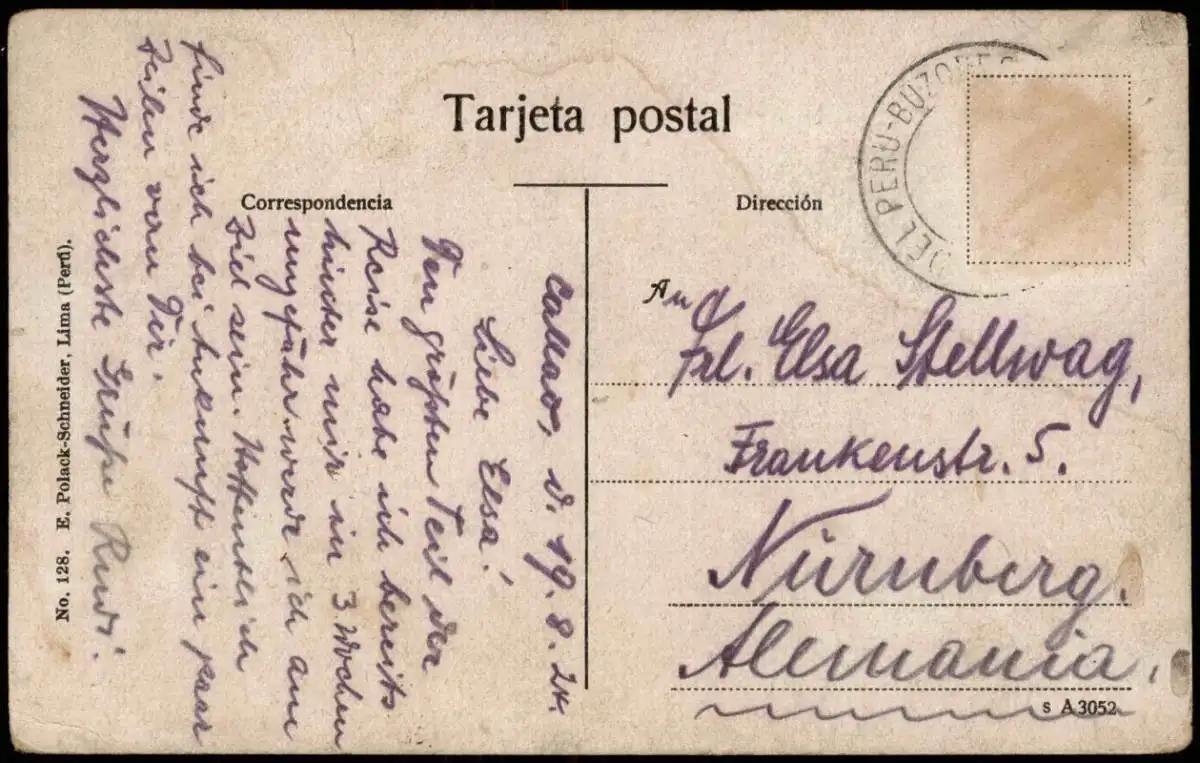 Tarjeta postal
Correspondencia
Dirección
DEL PERU-BUZONES
Callao, d. 19. 8. 24.
Liebe Elsa!
Den größten Teil der
Reise habe ich bereits
hinter mir in 3 Wochen
ungefähr werde ich am
Ziel sein. Hoffentlich
finde ich bei Ankunft ein paar
Zeilen von Dir.
Herzlichste Grüße Rudi.
An
Frl. Elsa Stellwag,
Frankenstr. 5.
Nürnberg.
Alemania.
s A 3052
No. 128. E. Polack-Schneider, Lima (Perú).